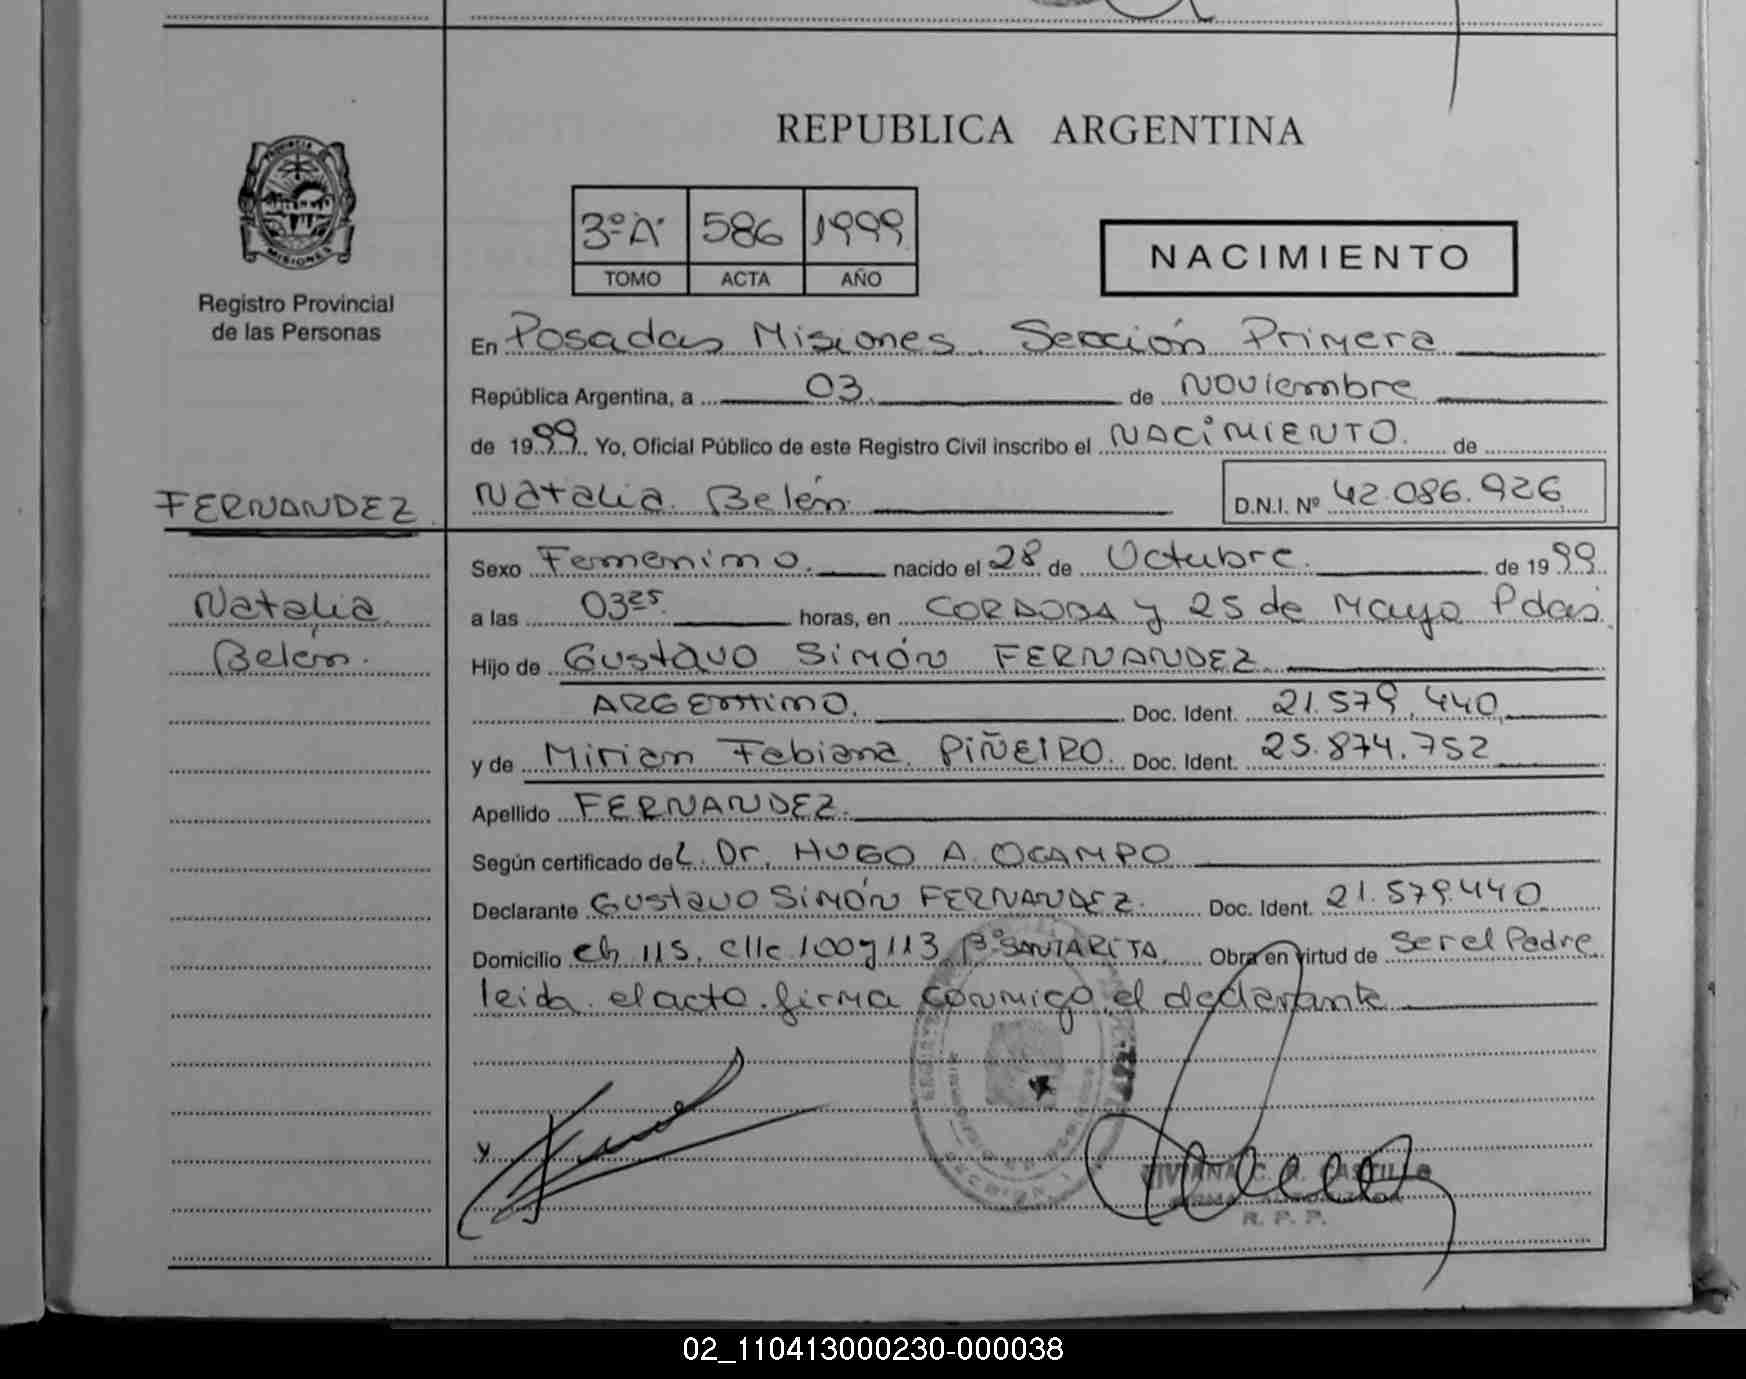 REPUBLICA ARGENTINA
3º A 586 1999
TOMO ACTA AÑO
NACIMIENTO
PROVINCIA DE
MISIONES
Registro Provincial
de las Personas
En Posadas Misiones Sección Primera
República Argentina, a 03 de Noviembre
de 1999. Yo, Oficial Público de este Registro Civil inscribo el NACIMIENTO. de
FERNANDEZ Natalia Belén D.N.I. Nº 42.086.926
Sexo Femenino. nacido el 28 de Octubre. de 1999.
Natalia a las 03 25 horas, en CORDOBA y 25 de Mayo Pdas.
Belén. Hijo de Gustavo Simón FERNANDEZ
ARGENTINO. Doc. Ident. 21.579.440
y de Mirian Fabiana PIÑEIRO. Doc. Ident. 25.874.752
Apellido FERNANDEZ.
Según certificado del Dr. HUGO A. OCAMPO
Declarante Gustavo Simón FERNANDEZ. Doc. Ident. 21.579.440
Domicilio ch 115, clle 100 y 113 Bº SANTA RITA. Obra en virtud de Ser el Padre
leida el acto firma conmigo el declarante
y
VIVIANA C. R. CASTILLO
R. P. P.
02_110413000230-000038